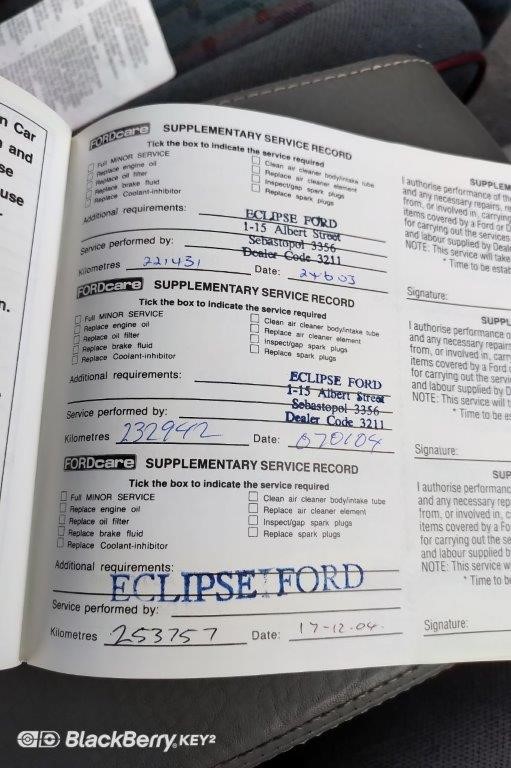 n Car
n and
se
use
n.
FORDcare SUPPLEMENTARY SERVICE RECORD
Tick the box to indicate the service required
Full MINOR SERVICE
Replace engine oil
Replace oil filter
Replace brake fluid
Replace Coolant-inhibitor
Clean air cleaner body/intake tube
Replace air cleaner element
Inspect/gap spark plugs
Replace spark plugs
Additional requirements:
ECLIPSE FORD
1-15 Albert Street
Sebastopol 3356
Dealer Code 3211
Service performed by:
Kilometres 221431 Date: 24.6.03
FORDcare SUPPLEMENTARY SERVICE RECORD
Tick the box to indicate the service required
Full MINOR SERVICE
Replace engine oil
Replace oil filter
Replace brake fluid
Replace Coolant-inhibitor
Clean air cleaner body/intake tube
Replace air cleaner element
Inspect/gap spark plugs
Replace spark plugs
Additional requirements:
ECLIPSE FORD
1-15 Albert Street
Sebastopol 3356
Dealer Code 3211
Service performed by:
Kilometres 232942 Date: 070104
FORDcare SUPPLEMENTARY SERVICE RECORD
Tick the box to indicate the service required
Full MINOR SERVICE
Replace engine oil
Replace oil filter
Replace brake fluid
Replace Coolant-inhibitor
Clean air cleaner body/intake tube
Replace air cleaner element
Inspect/gap spark plugs
Replace spark plugs
Additional requirements:
ECLIPSE FORD
Service performed by:
Kilometres 253757 Date: 17-12-04.
SUPPLEM
I authorise performance of th
and any necessary repairs, re
from, or involved in, carrying
items covered by a Ford or D
for carrying out the services
and labour supplied by Deal
NOTE: This service will take
* Time to be estab
Signature:
SUPPL
I authorise performance o
and any necessary repair
from, or involved in, carr
items covered by a Ford
for carrying out the servi
and labour supplied by D
NOTE: This service will t
* Time to be es
Signature:
SUP
I authorise performanc
and any necessary rep
from, or involved in, c
items covered by a Fo
for carrying out the se
and labour supplied b
NOTE: This service w
* Time to b
Signature:
BlackBerry KEY2